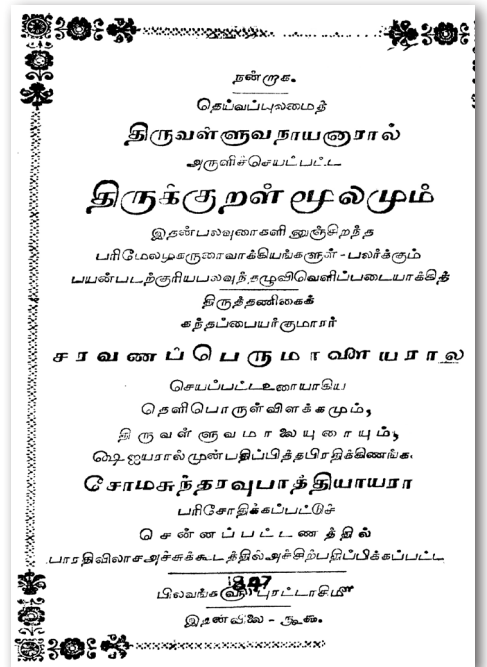 நன்றாக.
தெய்வப்புலமைத்
திருவள்ளுவநாயனாரால்
அருளிச்செயப்பட்ட
திருக்குறள் மூலமும்
இதன்பலவுரைகளினுஞ்சிறந்த
பரிமேலழகருரைவாக்கியங்களுள்-பலர்க்கும்
பயன்படற்குரியபலவுந்தழுவிவெளிப்படையாக்கித்
திருத்தணிகைக்
கந்தப்பையர்குமாரர்
சரவணப்பெருமாளையரால்
செயப்பட்டஉரையாகிய
தெளிபொருள்விளக்கமும்,
திருவள்ளுவமாலையுரையும்,
ஷெ ஐயரால்முன்பதிப்பித்தபிரதிக்கிணங்க.
சோமசுந்தரவுபாத்தியாயரா
பரிசோதிக்கப்பட்டுச்
சென்னப்பட்டணத்தில்
பாரதிவிலாசஅச்சுக்கூடத்தில்அச்சிற்பதிப்பிக்கப்பட்ட
1847
பிலவங்க௵ புரட்டாசி௴
இதன்விலை -